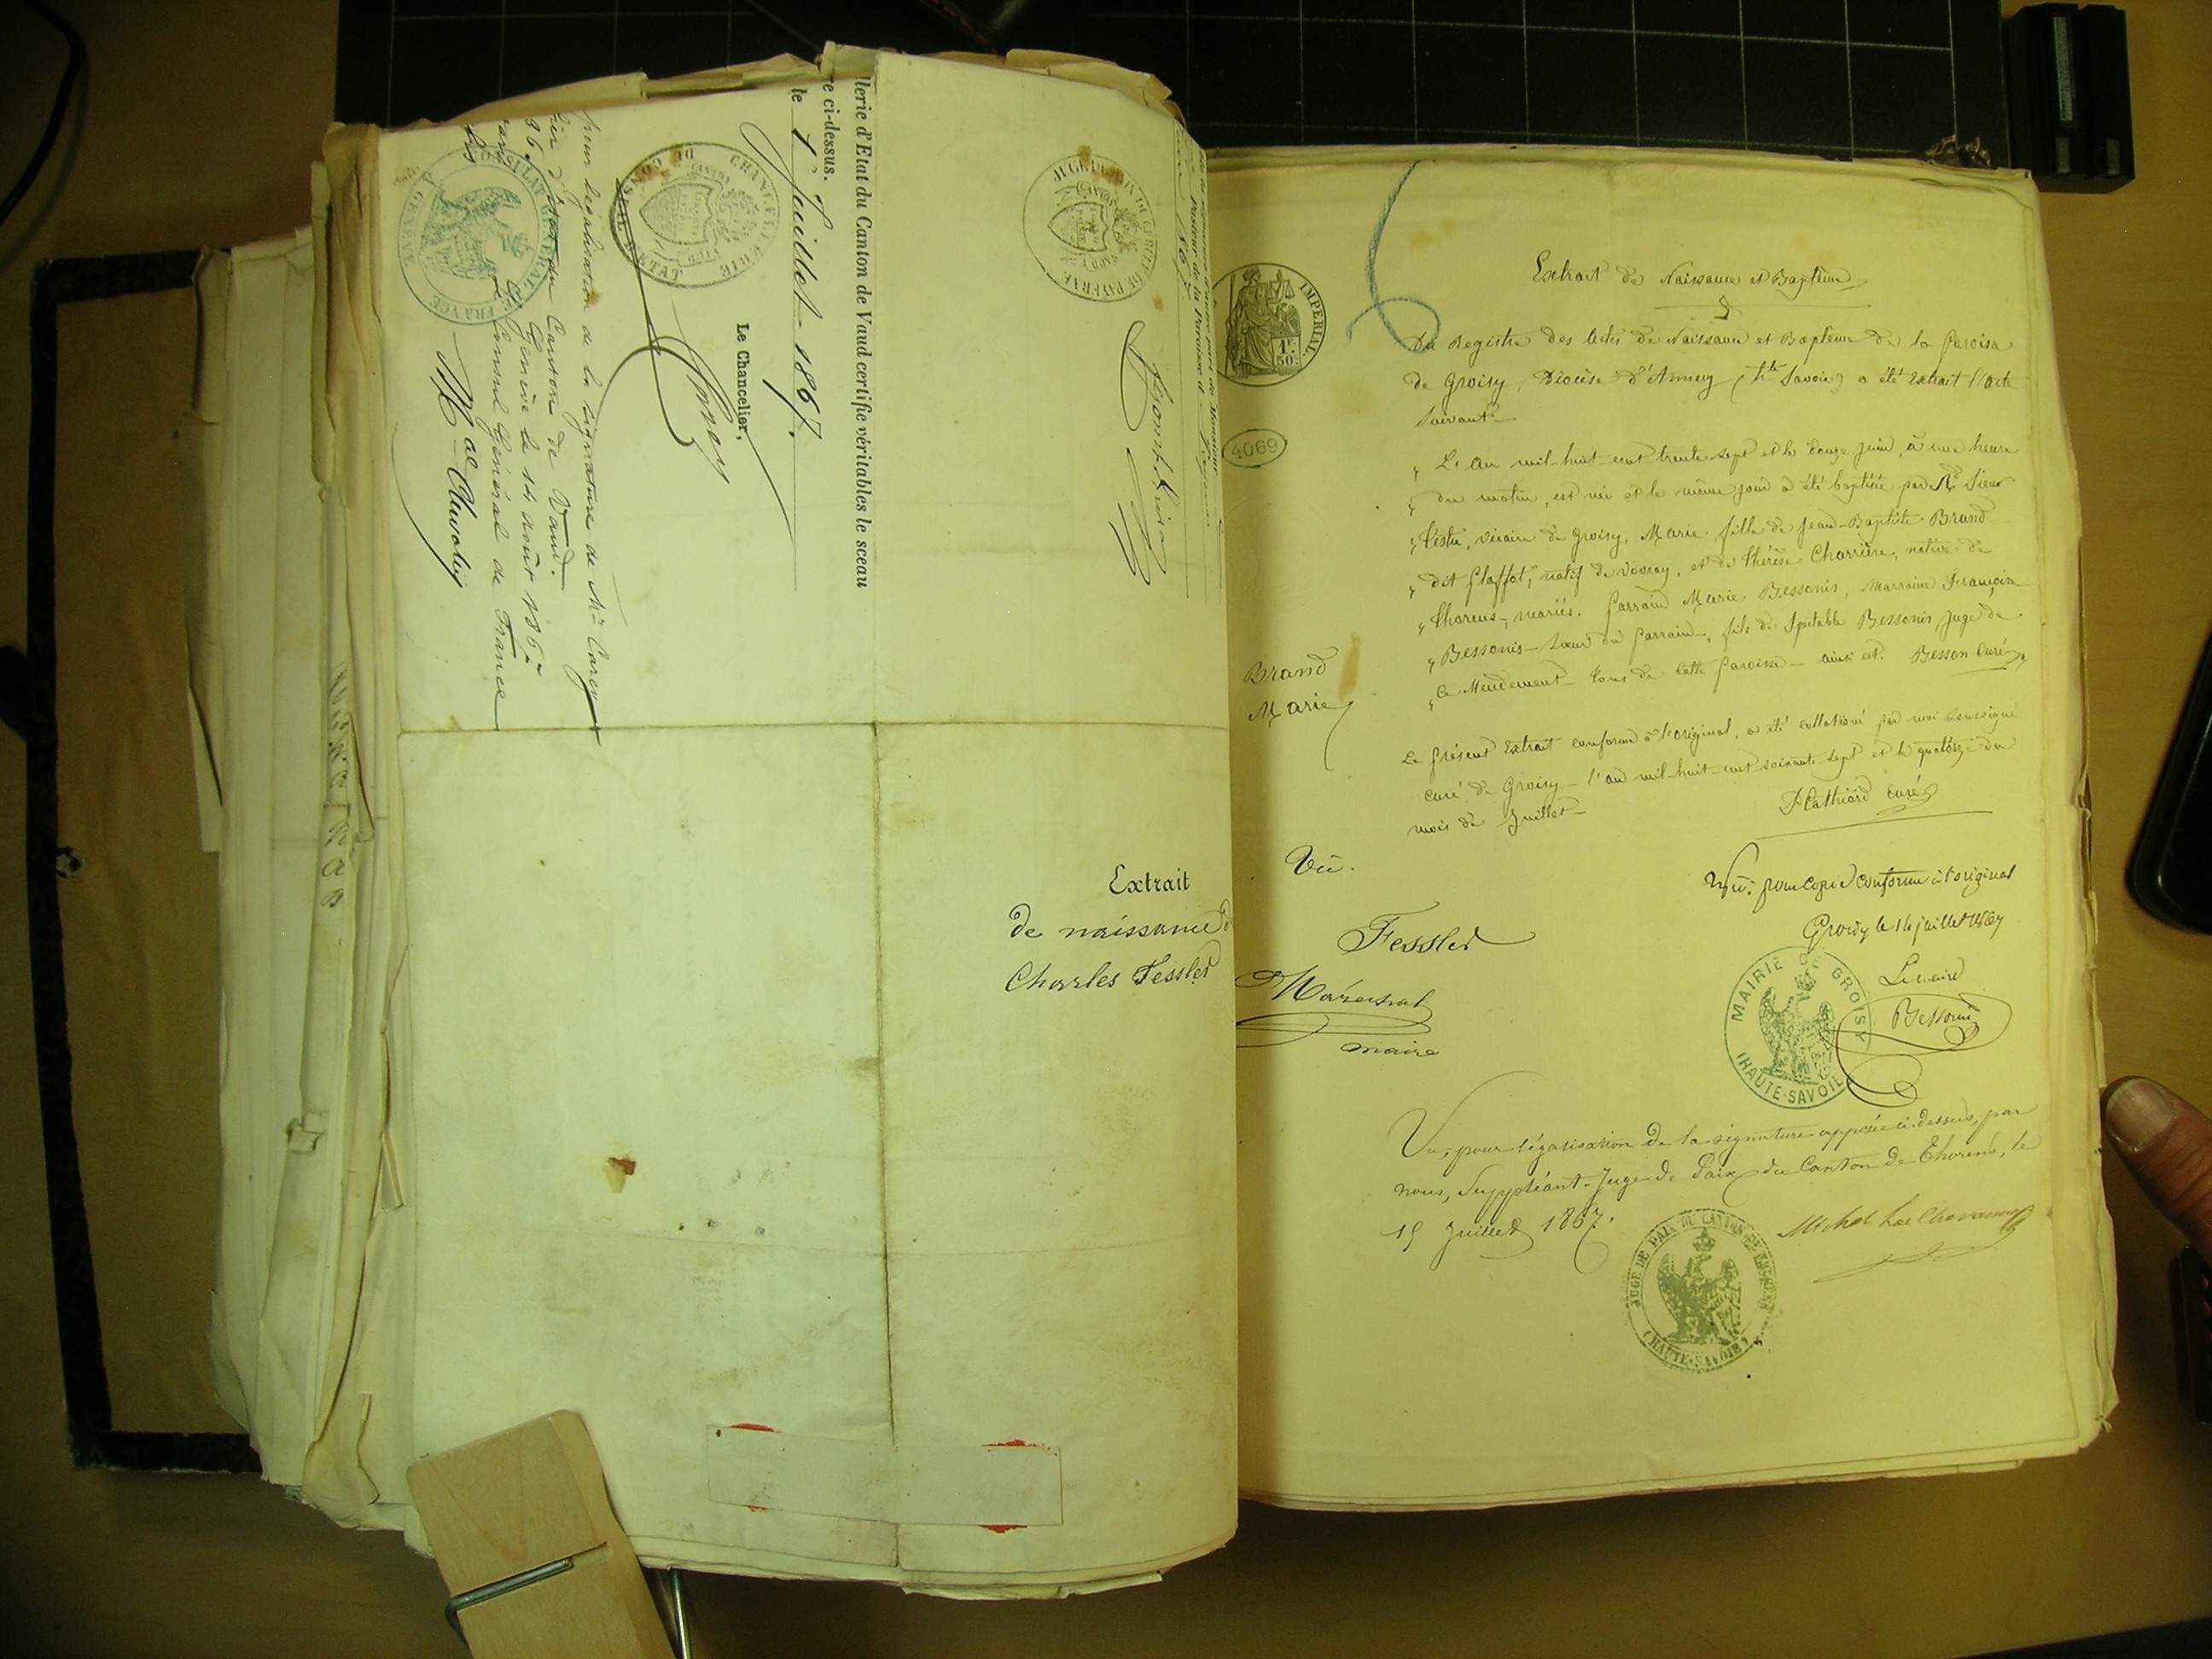 lerie d'Etat du Canton de Vaud certifie véritables le sceau
e ci-dessus.
le 1 Juillet 1867.
Le Chancelier,
Carey
CHANCELLERIE
DU CONSEIL D'ETAT
CANTON DE VAUD
pour légalisation de la signature de Mr Carey
lier d'Etat du Canton de Vaud.
Genève le 14 août 1867
Le Consul Général de France
CONSULAT GENERAL DE FRANCE
A GENEVE
JUGE DE PAIX DU CERCLE DE PAYERNE
CANTON DE VAUD
Pasteur de la Paroisse d
Extrait
de naissance de
Charles Fessler
IMPERIAL
1F.
50c.
4069
Extrait de Naissance et Baptême
Du Registre des Actes de Naissance et Baptême de la Paroisse
de Groisy, Diocèse d'Annecy (Hte Savoie) a été Extrait l'acte
suivant
„ L'an mil-huit-cent-trente sept et le douze juin, à une heure
„ du matin, est née et le même jour a été baptisée par Rd Sieur
„ Testu, vicaire de Groisy, Marie fille de Jean-Baptiste Brand
„ dit Plaffot, natif de Vovray, et de Thérèse Charrière, native de
„ Thorens, mariés. Parrain Marie Bessonis, Marraine Françoise
„ Bessonis sœur du Parrain, fils de Spectable Bessonis, Juge de
„ Ce Mendement tous de cette Paroisse - ainsi est. Besson Curé
Brand
Marie
Le présent Extrait conforme à l'original, a été collationé par moi soussigné
curé de Groisy l'an mil-huit-cent soixante sept et le quatorze du
mois de Juillet
Plathiard curé
Vu.
Fessler
Maréchal
maire
Vu: pour copie conforme à l'original
Groisy le 14 juillet 1867
Le maire
Bessonis
MAIRIE DE GROISY
(HAUTE-SAVOIE)
Vu, pour légalisation de la signature apposée ci-dessus, par
nous, Suppléant-Juge de Paix du Canton de Thorens, le
15 Juillet 1867.
JUGE DE PAIX DU CANTON DE THORENS
(HAUTE-SAVOIE)